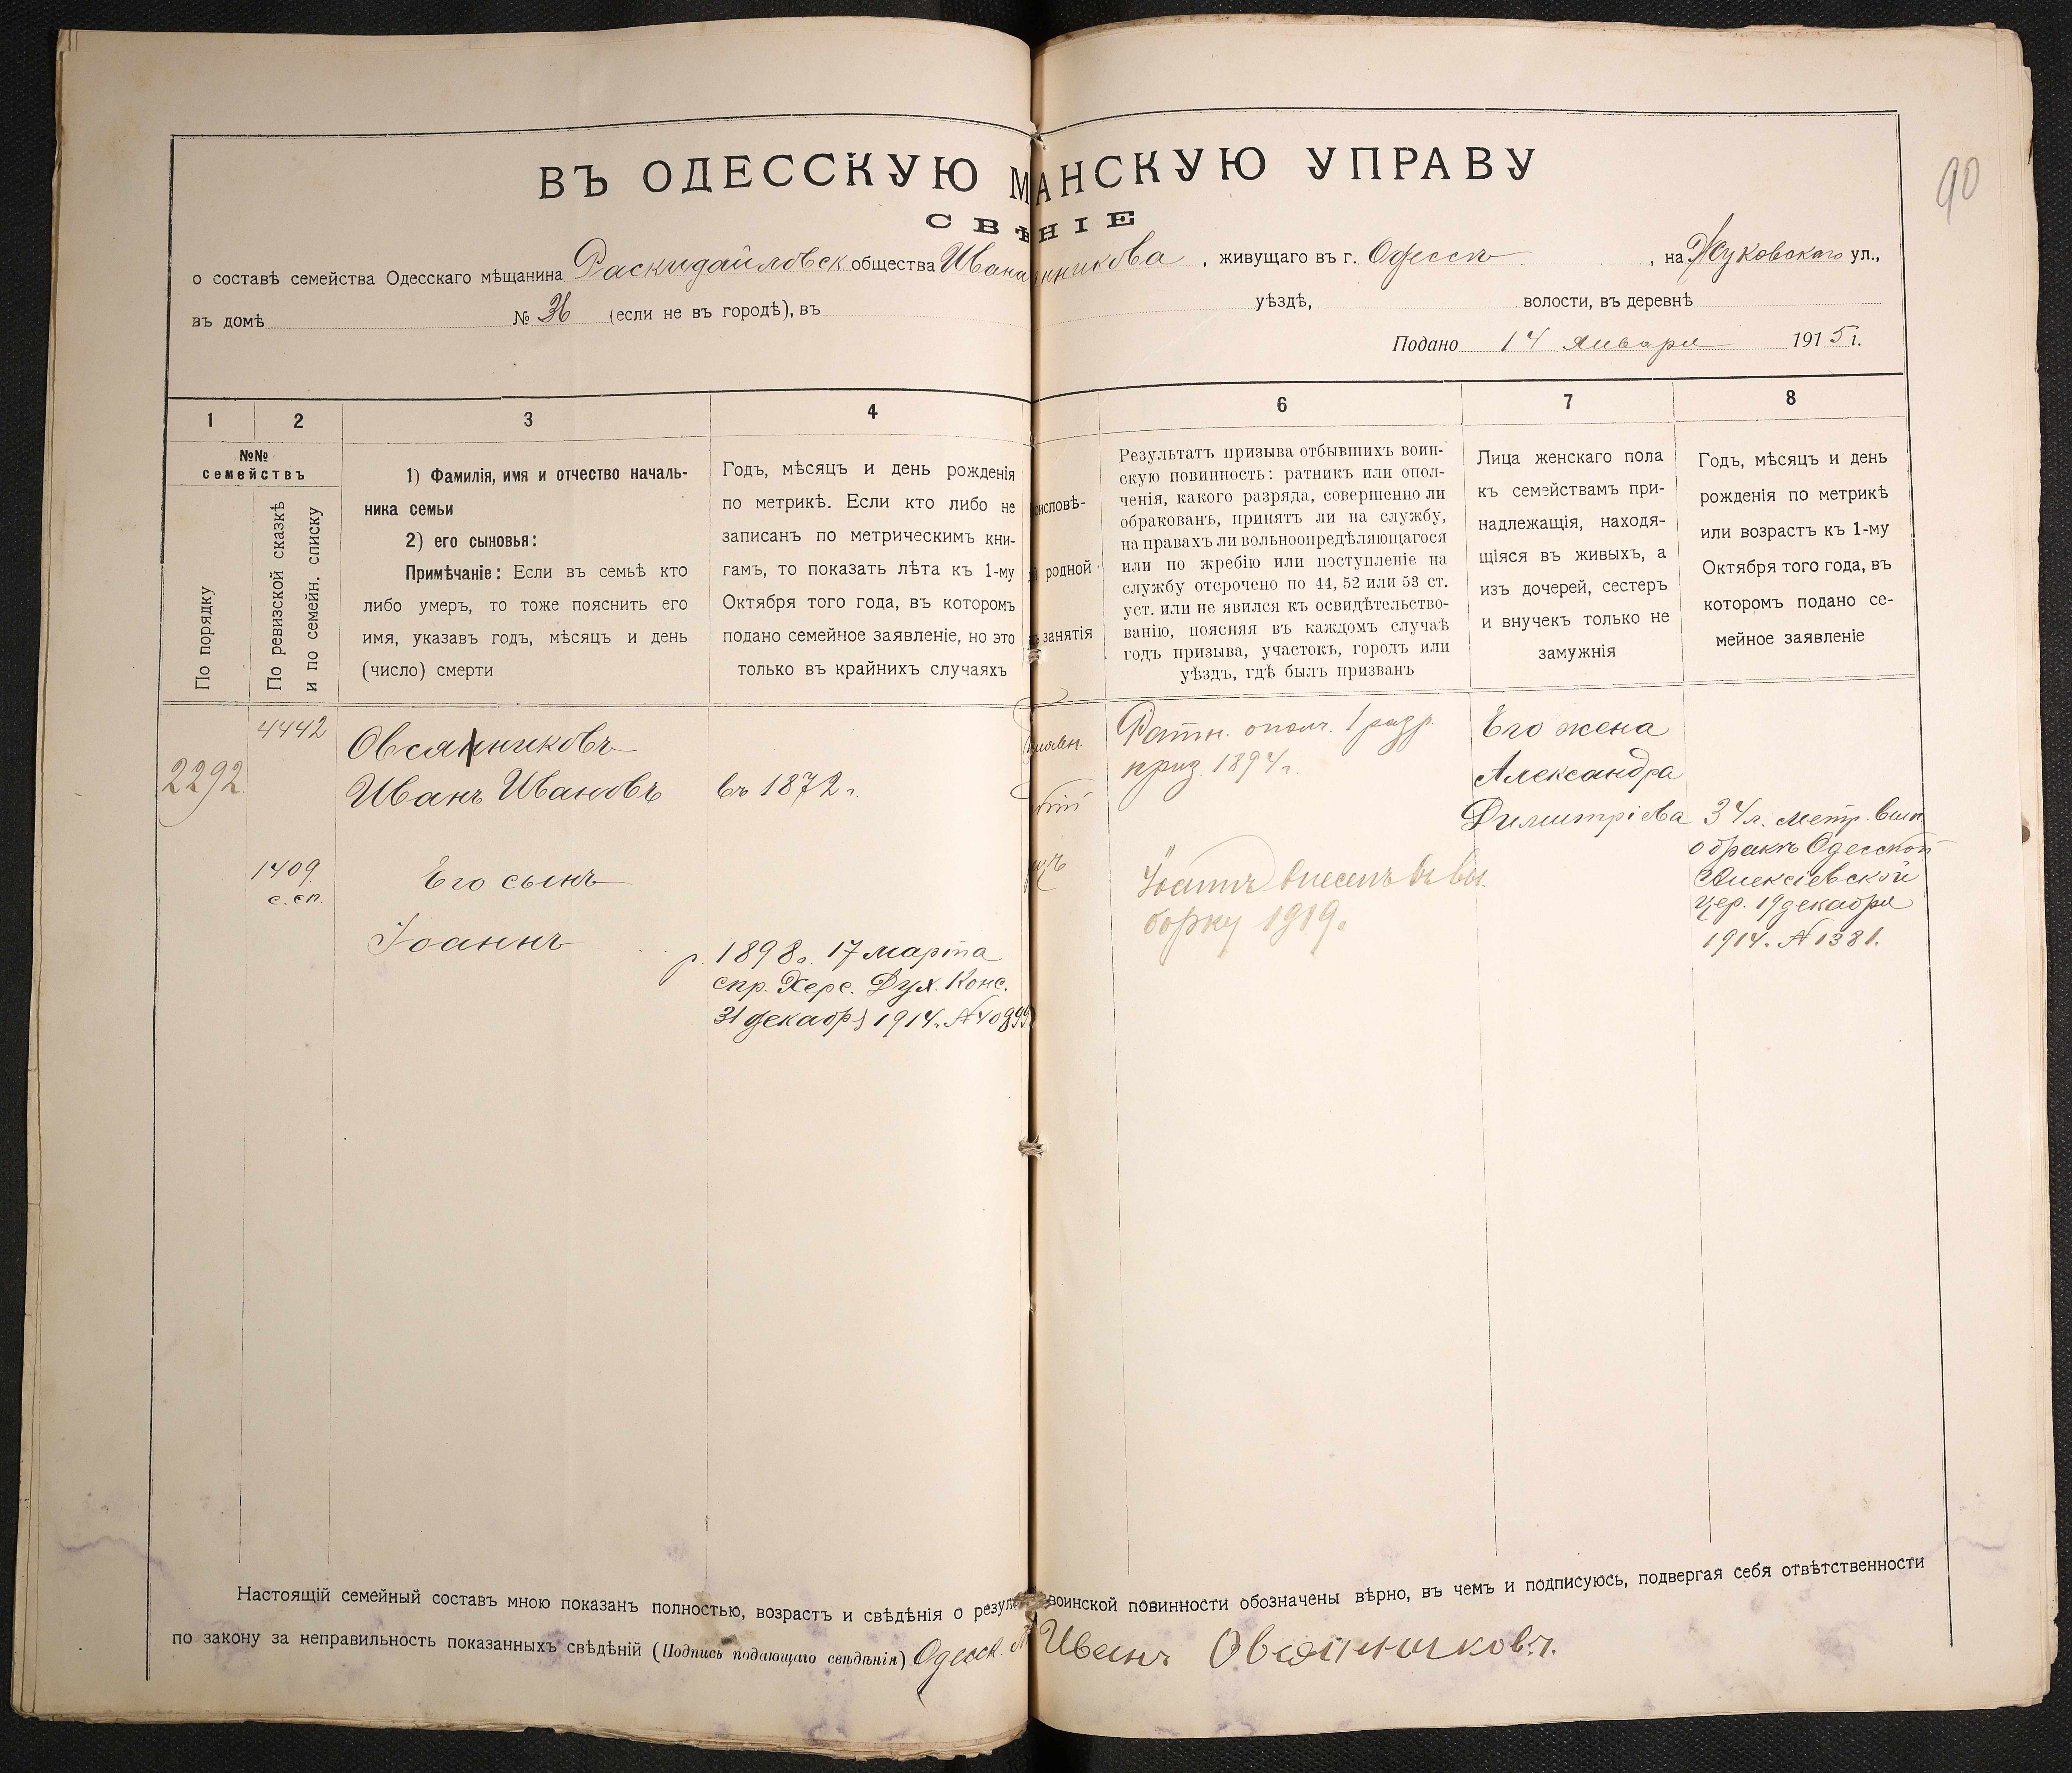 90
ВЪ ОДЕССКУЮ МАНСКУЮ УПРАВУ
СВѢНІЕ
о составѣ семейства Одесскаго мѣщанина Раскидайловск общества Ивана нникова , живущаго въ г. Одессѣ , на Жуковскаго ул.,
въ домѣ № 36 (если не въ городѣ), въ уѣздѣ, волости, въ деревнѣ
Подано 14 января 1915 г.
1
2
3
4
6
7
8
№№
семействъ
По порядку
По ревизской сказкѣ
и по семейн. списку
1) Фамилія, имя и отчество началь-
ника семьи
2) его сыновья:
Примѣчаніе: Если въ семьѣ кто
либо умеръ, то тоже пояснить его
имя, указавъ годъ, мѣсяцъ и день
(число) смерти
Годъ, мѣсяцъ и день рожденія
по метрикѣ. Если кто либо не
записанъ по метрическимъ кни-
гамъ, то показать лѣта къ 1-му
Октября того года, въ которомъ
подано семейное заявленіе, но это
только въ крайнихъ случаяхъ
исповѣ-
родной
занятія
Результатъ призыва отбывшихъ воин-
скую повинность: ратникъ или опол-
ченія, какого разряда, совершенно ли
обракованъ, принятъ ли на службу,
на правахъ ли вольноопредѣляющагося
или по жребію или поступленіе на
службу отсрочено по 44, 52 или 53 ст.
уст. или не явился къ освидѣтельство-
ванію, поясняя въ каждомъ случаѣ
годъ призыва, участокъ, городъ или
уѣздъ, гдѣ былъ призванъ
Лица женскаго пола
къ семействамъ при-
надлежащія, находя-
щіяся въ живыхъ, а
изъ дочерей, сестеръ
и внучекъ только не
замужнія
Годъ, мѣсяцъ и день
рожденія по метрикѣ
или возрастъ къ 1-му
Октября того года, въ
которомъ подано се-
мейное заявленіе
2292
4442
Овсянниковъ
Иванъ Ивановъ
въ 1872 г.
Ратн. ополч. 1 разр.
приз. 1894 г.
Его жена
Александра
Димитріева
34 л. метр. вып
о бракѣ Одесской
Алексіевской
цер. 19 декабря
1914. № 1381.
1409
с. сп.
Его сынъ
Іоаннъ
р. 1898 г. 17 марта
спр. Херс. Дух. Конс.
31 декабр 1914 г. № 40899
Іоаннъ внесенъ въ вы
борку 1919 г.
Настоящій семейный составъ мною показанъ полностью, возрастъ и свѣдѣнія о резул воинской повинности обозначены вѣрно, въ чемъ и подписуюсь, подвергая себя отвѣтственности
по закону за неправильность показанныхъ свѣдѣній (Подпись подающаго свѣдѣнія) Одесск. М Иванъ Овсянниковъ.